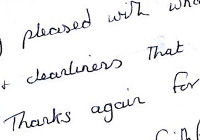 pleased with
+ cleanliness that
Thanks again for